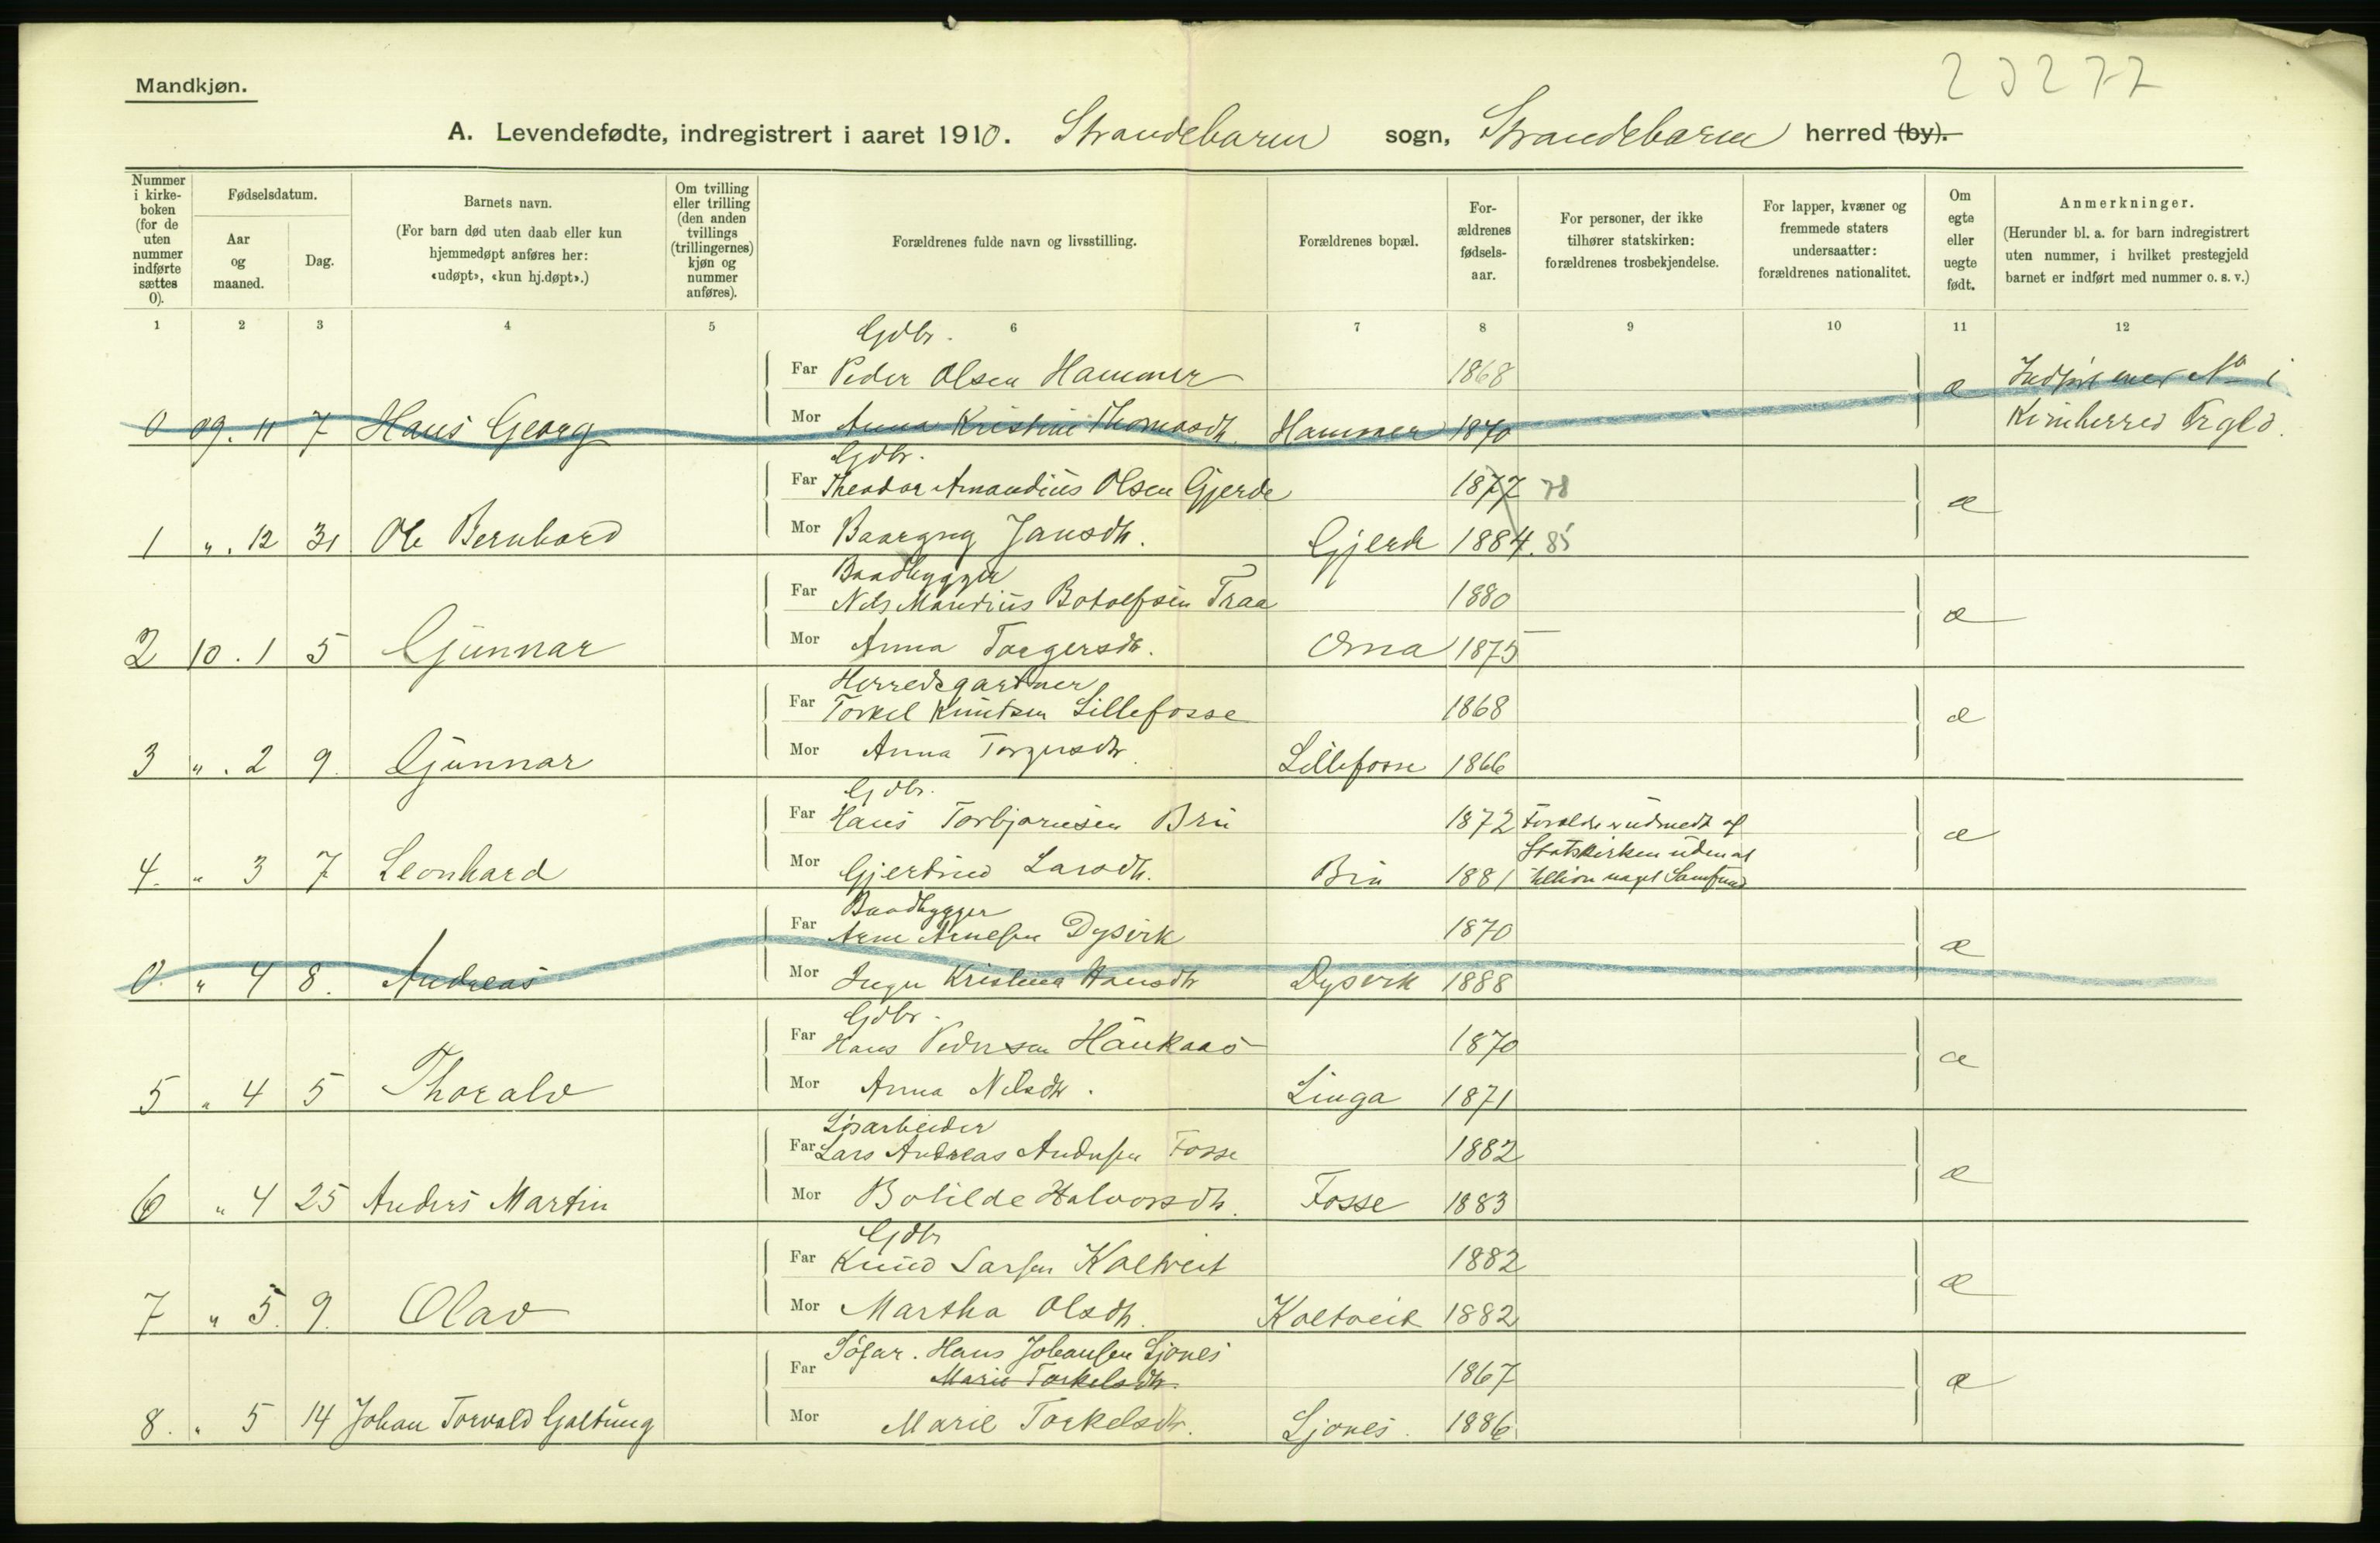 23277
Mandkjøn.
A. Levendefødte, indregistrert i aaret 1910. Strandebarm sogn, Strandebarm herred (by).
Nummer i kirke-boken (for de uten nummer indførte sættes 0).
Fødselsdatum.
Aar og maaned.
Dag.
Barnets navn.
(For barn død uten daab eller kun hjemmedøpt anføres her: «udøpt», «kun hj.døpt».)
Om tvilling eller trilling (den anden tvillings (trillingernes) kjøn og nummer anføres).
Forældrenes fulde navn og livsstilling.
Forældrenes bopæl.
For-ældrenes fødsels-aar.
For personer, der ikke tilhører statskirken: forældrenes trosbekjendelse.
For lapper, kvæner og fremmede staters undersaatter: forældrenes nationalitet.
Om egte eller uegte født.
Anmerkninger.
(Herunder bl. a. for barn indregistrert uten nummer, i hvilket prestegjeld barnet er indført med nummer o. s. v.)
1 2 3 4 5 6 7 8 9 10 11 12
Gdbr.
Far Peder Olsen Hammer 1868 æ Indført med No i
0 09. 11 7 Hans Georg Mor Anna Kristine Thomasdtr. Hammer 1870 Kvinherred Prgld.
Gdbr.
Far Theodor Amandius Olsen Gjerde 1877 78 æ
1 " . 12 31 Ole Bernhard Mor Baargny Jansdtr. Gjerde 1884. 85
Baadbygger
Far Nils Mandius Botolfsen Traa 1880 æ
2 10 . 1 5 Gunnar Mor Anna Torgersdtr. Oma 1875
Herredsgartner
Far Torkel Knutsen Lillefosse 1868 æ
3 " . 2 9. Gunnar Mor Anna Torgersdtr. Lillefosse 1866
Gdbr.
Far Hans Torbjørnsen Bru 1872 Foreldre udmeldt af æ
Statskirken uden at
4. " 3 7 Leonhard Mor Gjertrud Larsdtr. Bru 1881 noget Samfund
Baadbygger
Far Arne Arnesen Dysvik 1870 æ
0. " 4 8. Andreas Mor Inger Kristina Hansdtr Dysvik 1888
Gdbr.
Far Hans Pedersen Haukaas 1870 æ
5 " 4 5 Thoralv Mor Anna Nilsdtr. Linga 1871
Løsarbeider
Far Lars Andreas Andersen Fosse 1882 æ
6 " 4 25 Anders Martin Mor Botilde Halvorsdtr. Fosse 1883
Gdbr
Far Knud Larsen Kaltveit 1882 æ
7 " 5. 9. Olav Mor Martha Olsdtr. Kaltveit 1882
Far Søfar. Hans Johansen Ljones 1867 æ
Marie Torkelsdtr.
8. " 5 14 Johan Torvald Galtung Mor Marie Torkelsdtr. Ljones. 1886.